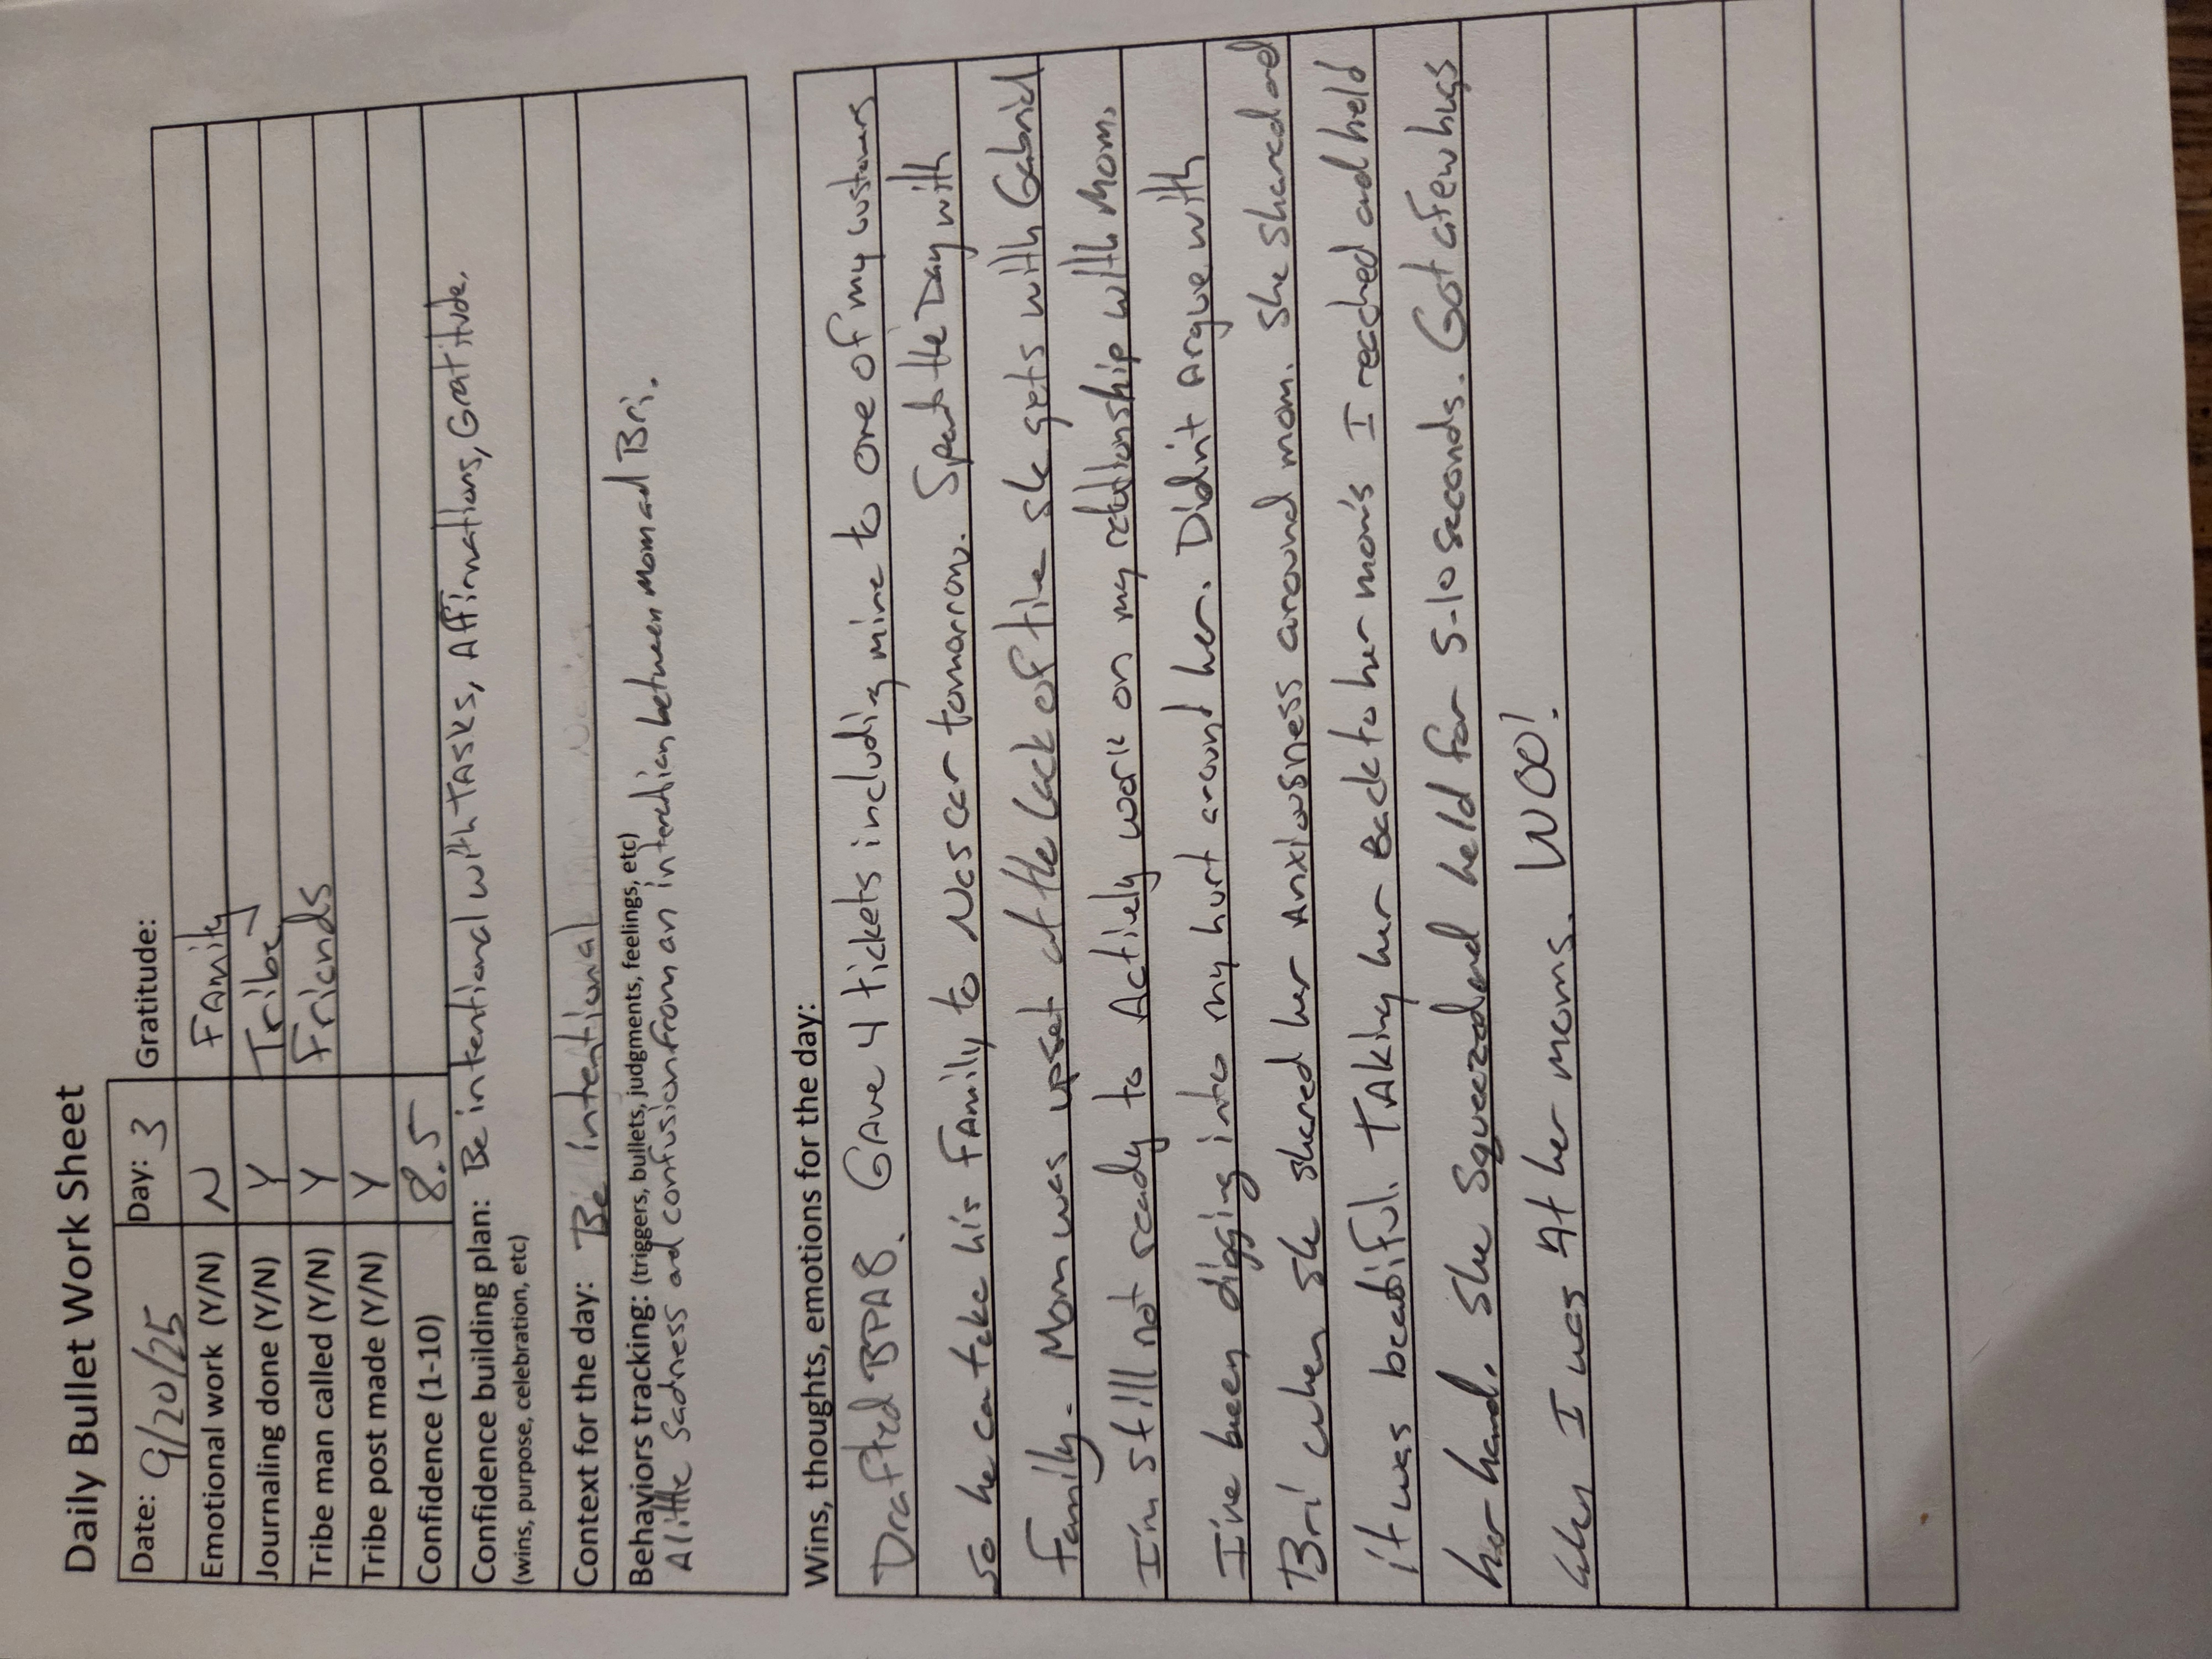 Daily Bullet Work Sheet
Date: 9/20/25 Day: 3 Gratitude:
Emotional work (Y/N) N Family
Journaling done (Y/N) Y Tribe
Tribe man called (Y/N) Y Friends
Tribe post made (Y/N) Y
Confidence (1-10) 8.5
Confidence building plan: Be intentional with Tasks, Affirmations, Gratitude.
(wins, purpose, celebration, etc)
Context for the day: Be intentional
Behaviors tracking: (triggers, bullets, judgments, feelings, etc)
A little sadness and confusion from an interaction between mom and Bri.
Wins, thoughts, emotions for the day:
Drafted BPA8. Gave 4 tickets including mine to one of my customers
so he can take his Family to Nascar tomorrow. Spent the Day with
family. Mom was upset at the lack of time she gets with Gabriel
I'm still not ready to Actively work on my relationship with Mom.
I've been digging into my hurt around her. Didn't Argue with
Bri when she shared her Anxiousness around mom. She shared and
it was beautiful. Taking her Back to her mom's I reached and held
her hand. She Squeezed and held for 5-10 seconds. Got a few hugs
when I was At her moms. WOO!